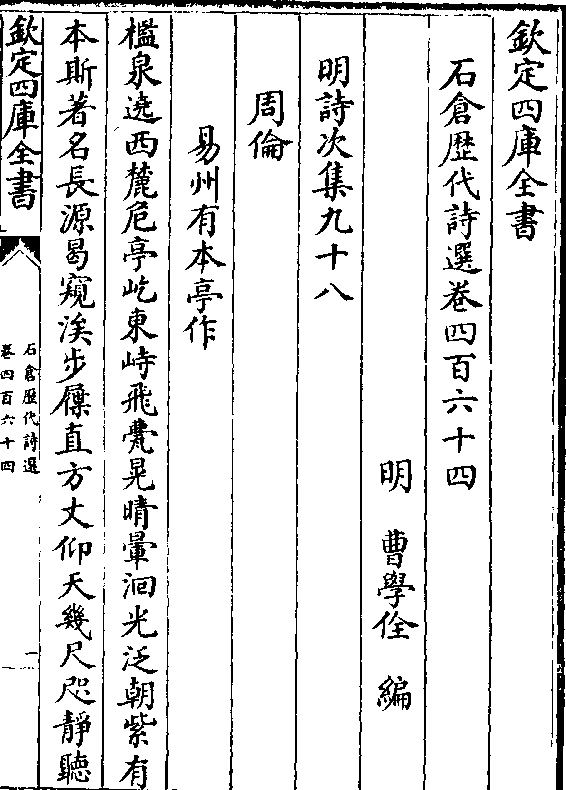 欽定四庫全書
石倉歷代詩選卷四百六十四
明　曹學佺　編
明詩次集九十八
周倫
易州有本亭作
檻泉遶西麓危亭屹東峙飛甍晃晴暈洄光泛朝紫有
本斯著名長源曷窺涘步屧直方丈仰天幾尺咫靜聽
欽定四庫全書
石倉歷代詩選
卷四百六十四
一